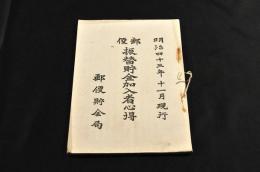 明治四十三年十一月現行
郵便振替貯金加入者心得
郵便貯金局